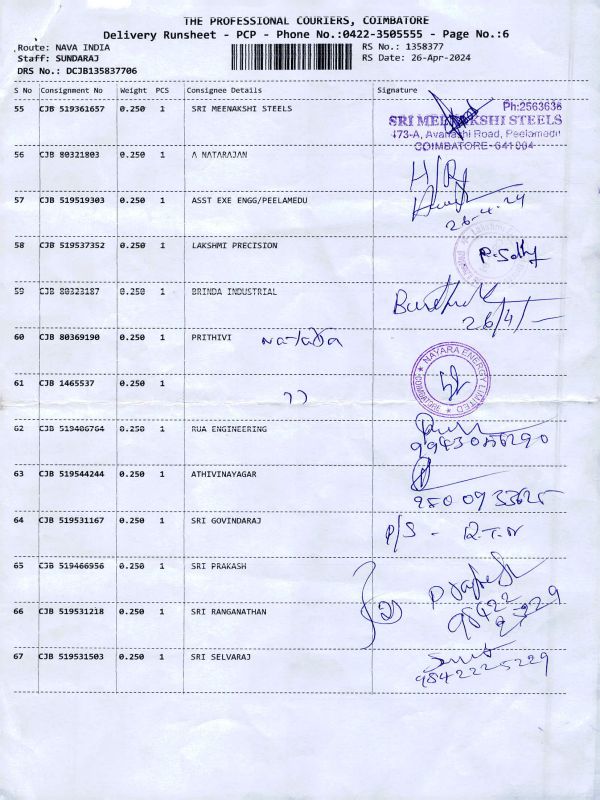 THE PROFESSIONAL COURIERS, COIMBATORE
Delivery Runsheet - PCP - Phone No.:0422-3505555 - Page No.:6
Route: NAVA INDIA
RS No.: 1358377
Staff: SUNDARAJ
RS Date: 26-Apr-2024
DRS No.: DCJB135837706
S No Consignment No Weight PCS Consignee Details Signature
55 CJB 519361657 0.250 1 SRI MEENAKSHI STEELS
Ph:2563636
SRI MEENAKSHI STEELS
173-A, Avanashi Road, Peelamedu
COIMBATORE-641004
56 CJB 80321803 0.250 1 A NATARAJAN
57 CJB 519519303 0.250 1 ASST EXE ENGG/PEELAMEDU
26-4-24
58 CJB 519537352 0.250 1 LAKSHMI PRECISION
59 CJB 80323187 0.250 1 BRINDA INDUSTRIAL
26/4/-
60 CJB 80369190 0.250 1 PRITHIVI
NAYARA ENERGY LIMITED
61 CJB 1465537 0.250 1
62 CJB 519486764 0.250 1 RUA ENGINEERING
9943056290
63 CJB 519544244 0.250 1 ATHIVINAYAGAR
9500933625
64 CJB 519531167 0.250 1 SRI GOVINDARAJ
P/S - R.T.N
65 CJB 519466956 0.250 1 SRI PRAKASH
66 CJB 519531218 0.250 1 SRI RANGANATHAN
98422
25229
67 CJB 519531503 0.250 1 SRI SELVARAJ
9842225229